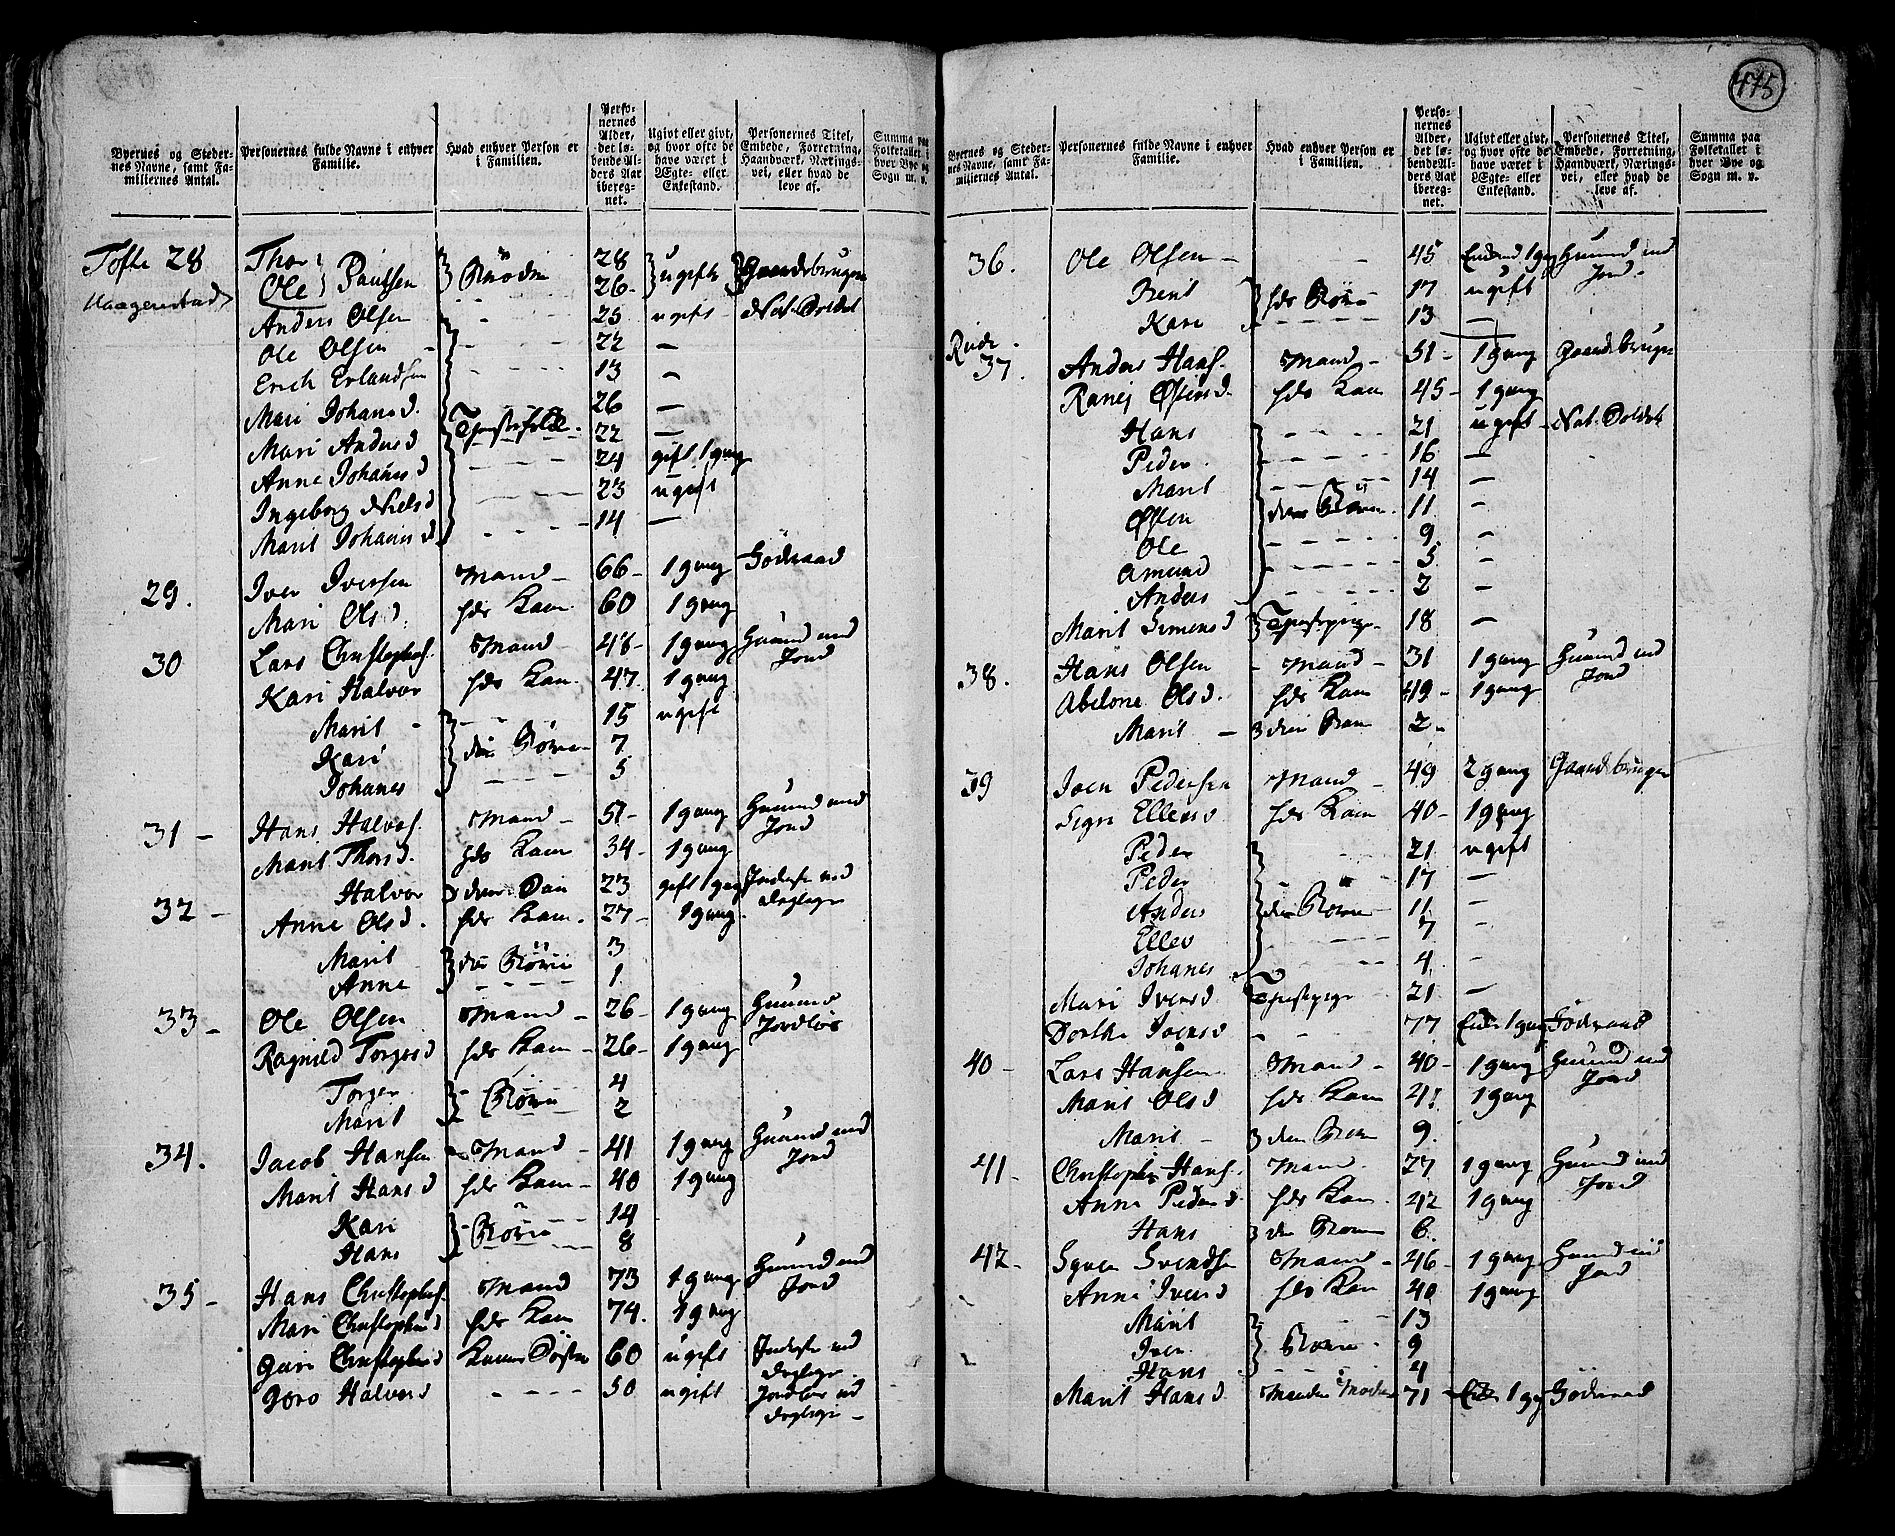 475
Byernes og Steder-
nes Navne, samt Fa-
miliernes Antal.
Personernes fulde Navne i enhver
Familie.
Hvad enhver Person er
i Familien.
Perso-
nernes
Alder,
det lø-
bende Al-
ders Aar
ibereg-
net.
Ugivt eller givt,
og hvor ofte de
have været i
Ægte- eller
Enkestand.
Personernes Titel,
Embede, Forretning,
Haandværk, Nærings-
vei, eller hvad de
leve af.
Summa paa
Folketallet i
hver Bye og
Sogn m. v.
Tofte 28 Thor 28
Ole Paulsen 26 ugifte Gaardebruger
Anders Olsen 25 ugift Nat. Soldat
Ole Olsen 22 —
Erich Erlandsen 13 —
Mari Johansd. 26 —
Mari Andersd Tjenestefolk 22 —
Anne Johanesd 24 gift 1 gang
Ingeborg Nielsd 23 ugift
Marit Johanesd 14 —
29. Iver Iversen Mand 66 1 gang
Mari Olsd. hds Kone 60 1 gang
30 Lars Christophers. Mand 48 1 gang Huusmd med Jord
Kari Halvor hds Kone 47 1 gang
Marit 15 ugift
Kari 7
Johanes 5
31 Hans Halvors. Mand 51 1 gang Huusmd med Jord
Marit Thorsd. hds Kone 34 1 gang
Halvor 23 gift 1 gang Inderste med
32 Anne Olsd. hds Kone 27 1 gang
Marit 3
Anne 1
33 Ole Olsen Mand 26 1 gang Huusmd Jordløs
Ragnild Torgersd hds Kone 26 1 gang
Torger 4
Marit 2
34. Jacob Hansen Mand 41 1 gang Huusmd med Jord
Marit Hansd hds Kone 40 1 gang
Kari 14
Hans 8
35 Hans Christophers. Mand 73 1 gang Huusmd med Jord
Mari Christophersd hds Kone 74. 1 gang
Guri Christophersd Konens Søster 60 ugift Inderste med
Goro Halvorsd 50 ugift Jordløs
Byernes og Steder-
nes Navne, samt Fa-
miliernes Antal.
Personernes fulde Navne i enhver
Familie.
Hvad enhver Person er
i Familien.
Perso-
nernes
Alder,
det lø-
bende Al-
ders Aar
ibereg-
net.
Ugivt eller givt,
og hvor ofte de
have været i
Ægte- eller
Enkestand.
Personernes Titel,
Embede, Forretning,
Haandværk, Nærings-
vei, eller hvad de
leve af.
Summa paa
Folketallet i
hver Bye og
Sogn m. v.
36. Ole Olsen 45 1 gang Huusmd med Jord
Berit 17 ugift
Kari 13 —
37. Anders Hans. Mand 51 1 gang Gaardebruger
Ranej Østensd. hds Kone 45 1 gang
Hans 21 ugift Nat. Soldat
Peder 16 —
Marit 14 —
Østen 11 —
Ole 9 —
Amund 5 —
Anders 2 —
Marit Simensd Tjenestepige 18 —
38. Hans Olsen Mand 31 1 gang Huusmd med Jord
Abelone Olsd. hds Kone 49 1 gang
Marit 2
39 Iver Pedersen Mand 49 2 gang Gaardebruger
Sigri Ellevsd hds Kone 40 1 gang
Peder 21 ugift
Peder 17 —
Anders 11 —
Ellev 7 —
Johanes 4 —
Mari Iversd Tjenestepige 21 —
Dorthe Iversd 77 1 gang
40 Lars Hansen Mand 40 1 gang Huusmd med Jord
Marit Olsd hds Kone 1 gang
Marit 9.
41 Christopher Hans. Mand 27 1 gang Huusmd med Jord
Anne Pedersd hds Kone 42 1 gang
Hans 6.
42 Syver Svendsen Mand 46 1 gang Huusmd med Jord
Anne Iversd hds Kone 40 1 gang
Marit 13
Iver 9
Hans 4
Marit Hansd Mandens Moder 71 1 gg